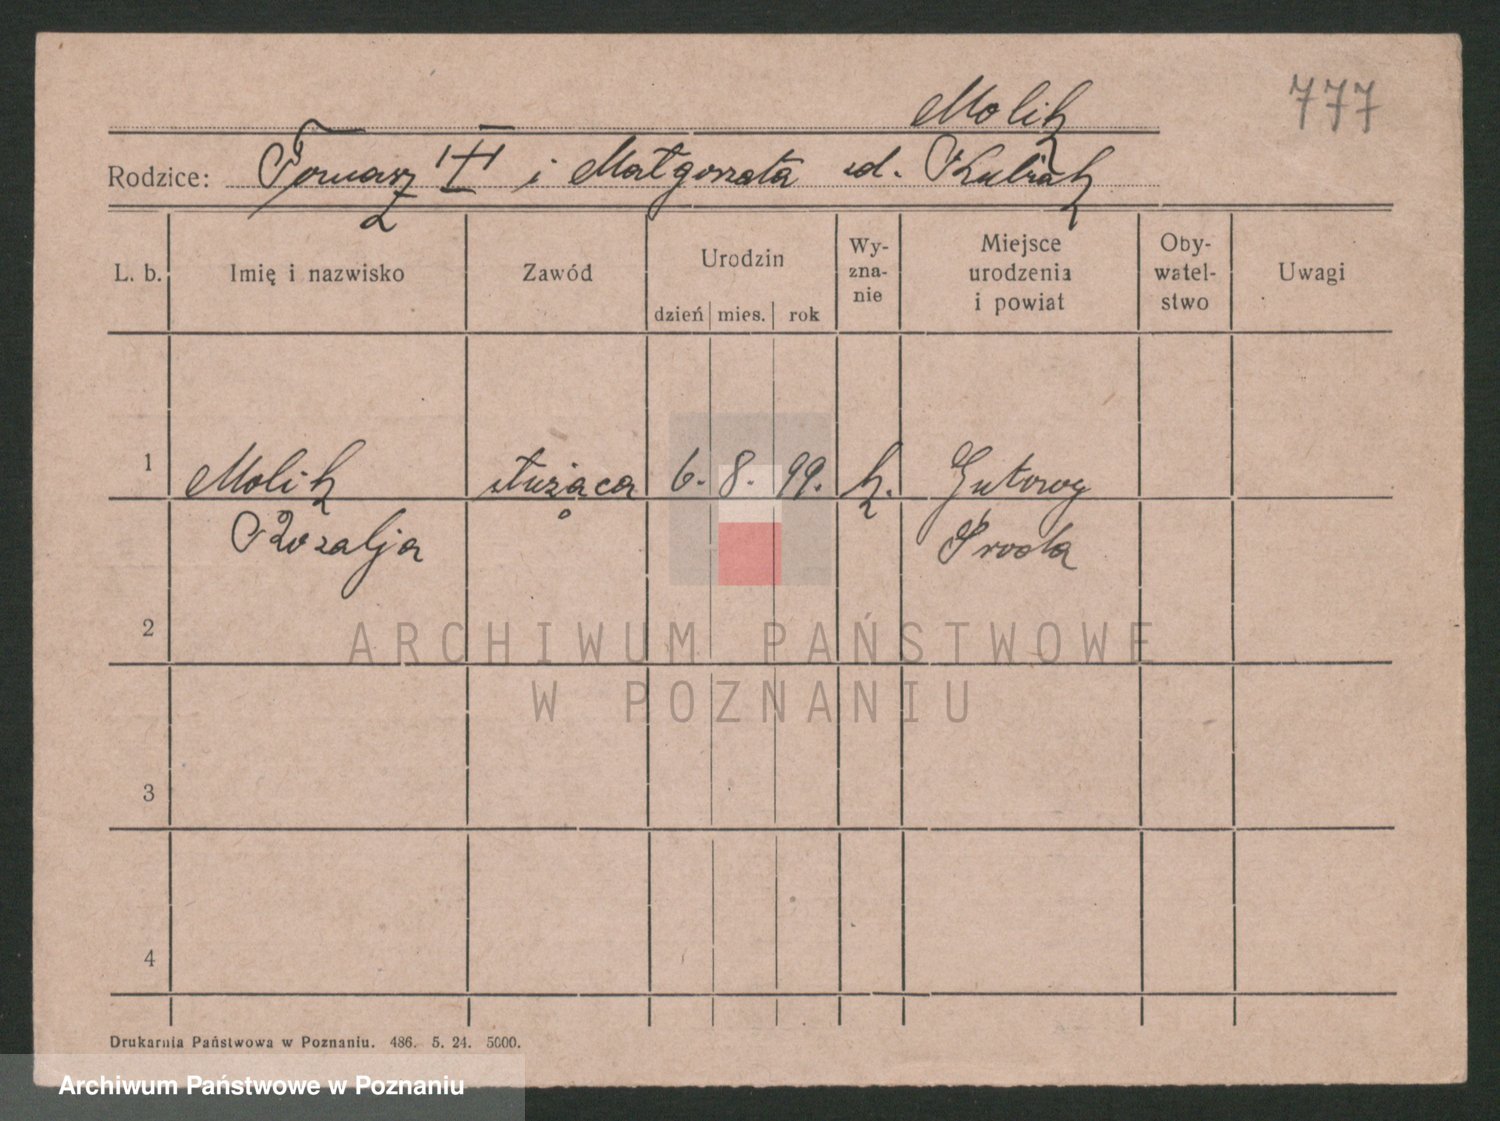 777
Molik
Rodzice: Tomasz i Małgorzata ud. Kubiak
L. b. Imię i nazwisko Zawód Urodzin dzień mies. rok Wy-znanie Miejsce urodzenia i powiat Oby-watel-stwo Uwagi
1 Molik służąca 6. 8. 99. k. Gutowy
Rozalja Środa
2
3
4
Drukarnia Państwowa w Poznaniu. 486. 5. 24. 5000.
ARCHIWUM PAŃSTWOWE
W POZNANIU
Archiwum Państwowe w Poznaniu